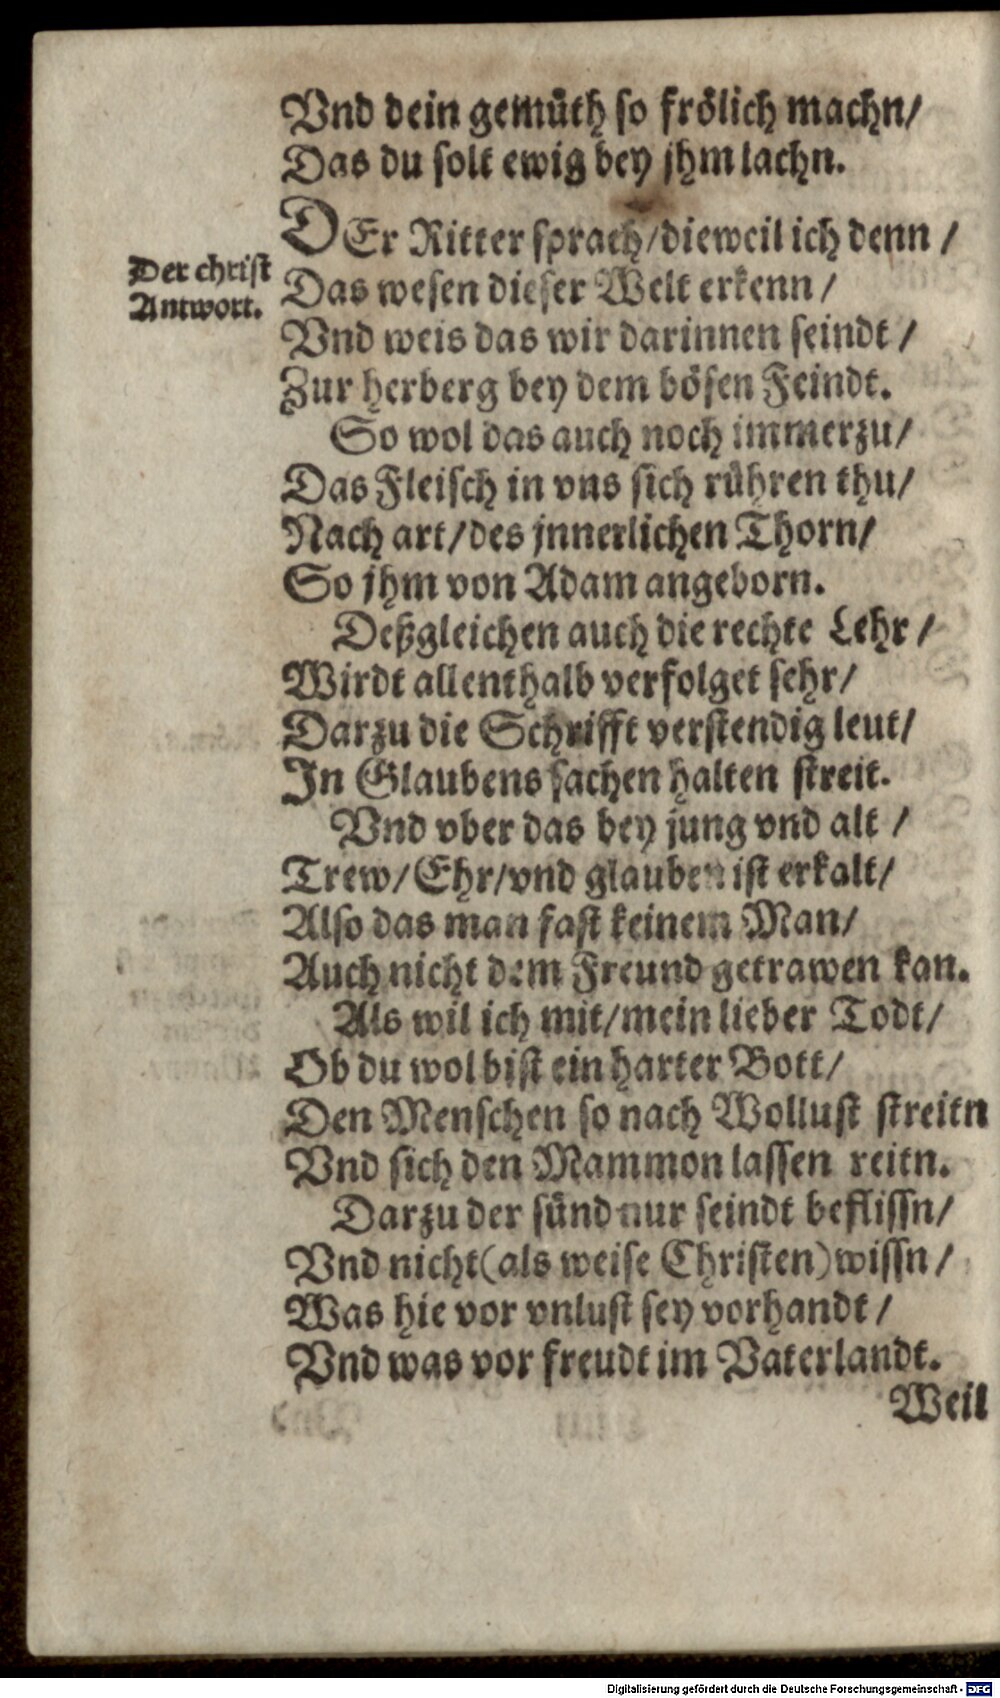 Vnd dein gemüth so frölich machn/
Das du solt ewig bey jhm lachn.
DEr Ritter sprach/dieweil ich denn /
Der christ
Antwort.
Das wesen dieser Welt erkenn /
Vnd weis das wir darinnen seindt /
Zur herberg bey dem bösen Feindt.
So wol das auch noch immerzu/
Das Fleisch in vns sich rühren thu/
Nach art/des jnnerlichen Thorn/
So jhm von Adam angeborn.
Deßgleichen auch die rechte Lehr /
Wirdt allenthalb verfolget sehr/
Darzu die Schrifft verstendig leut/
In Glaubens sachen halten streit.
Vnd vber das bey jung vnd alt /
Trew/Ehr/vnd glauben ist erkalt/
Also das man fast keinem Man/
Auch nicht dem Freund getrawen kan.
Als wil ich mit/mein lieber Todt/
Ob du wol bist ein harter Bott/
Den Menschen so nach Wollust streitn
Vnd sich den Mammon lassen reitn.
Darzu der sünd nur seindt beflissn/
Vnd nicht(als weise Christen)wissn/
Was hie vor vnlust sey vorhandt /
Vnd was vor freudt im Vaterlandt.
Weil
Digitalisierung gefördert durch die Deutsche Forschungsgemeinschaft - DFG